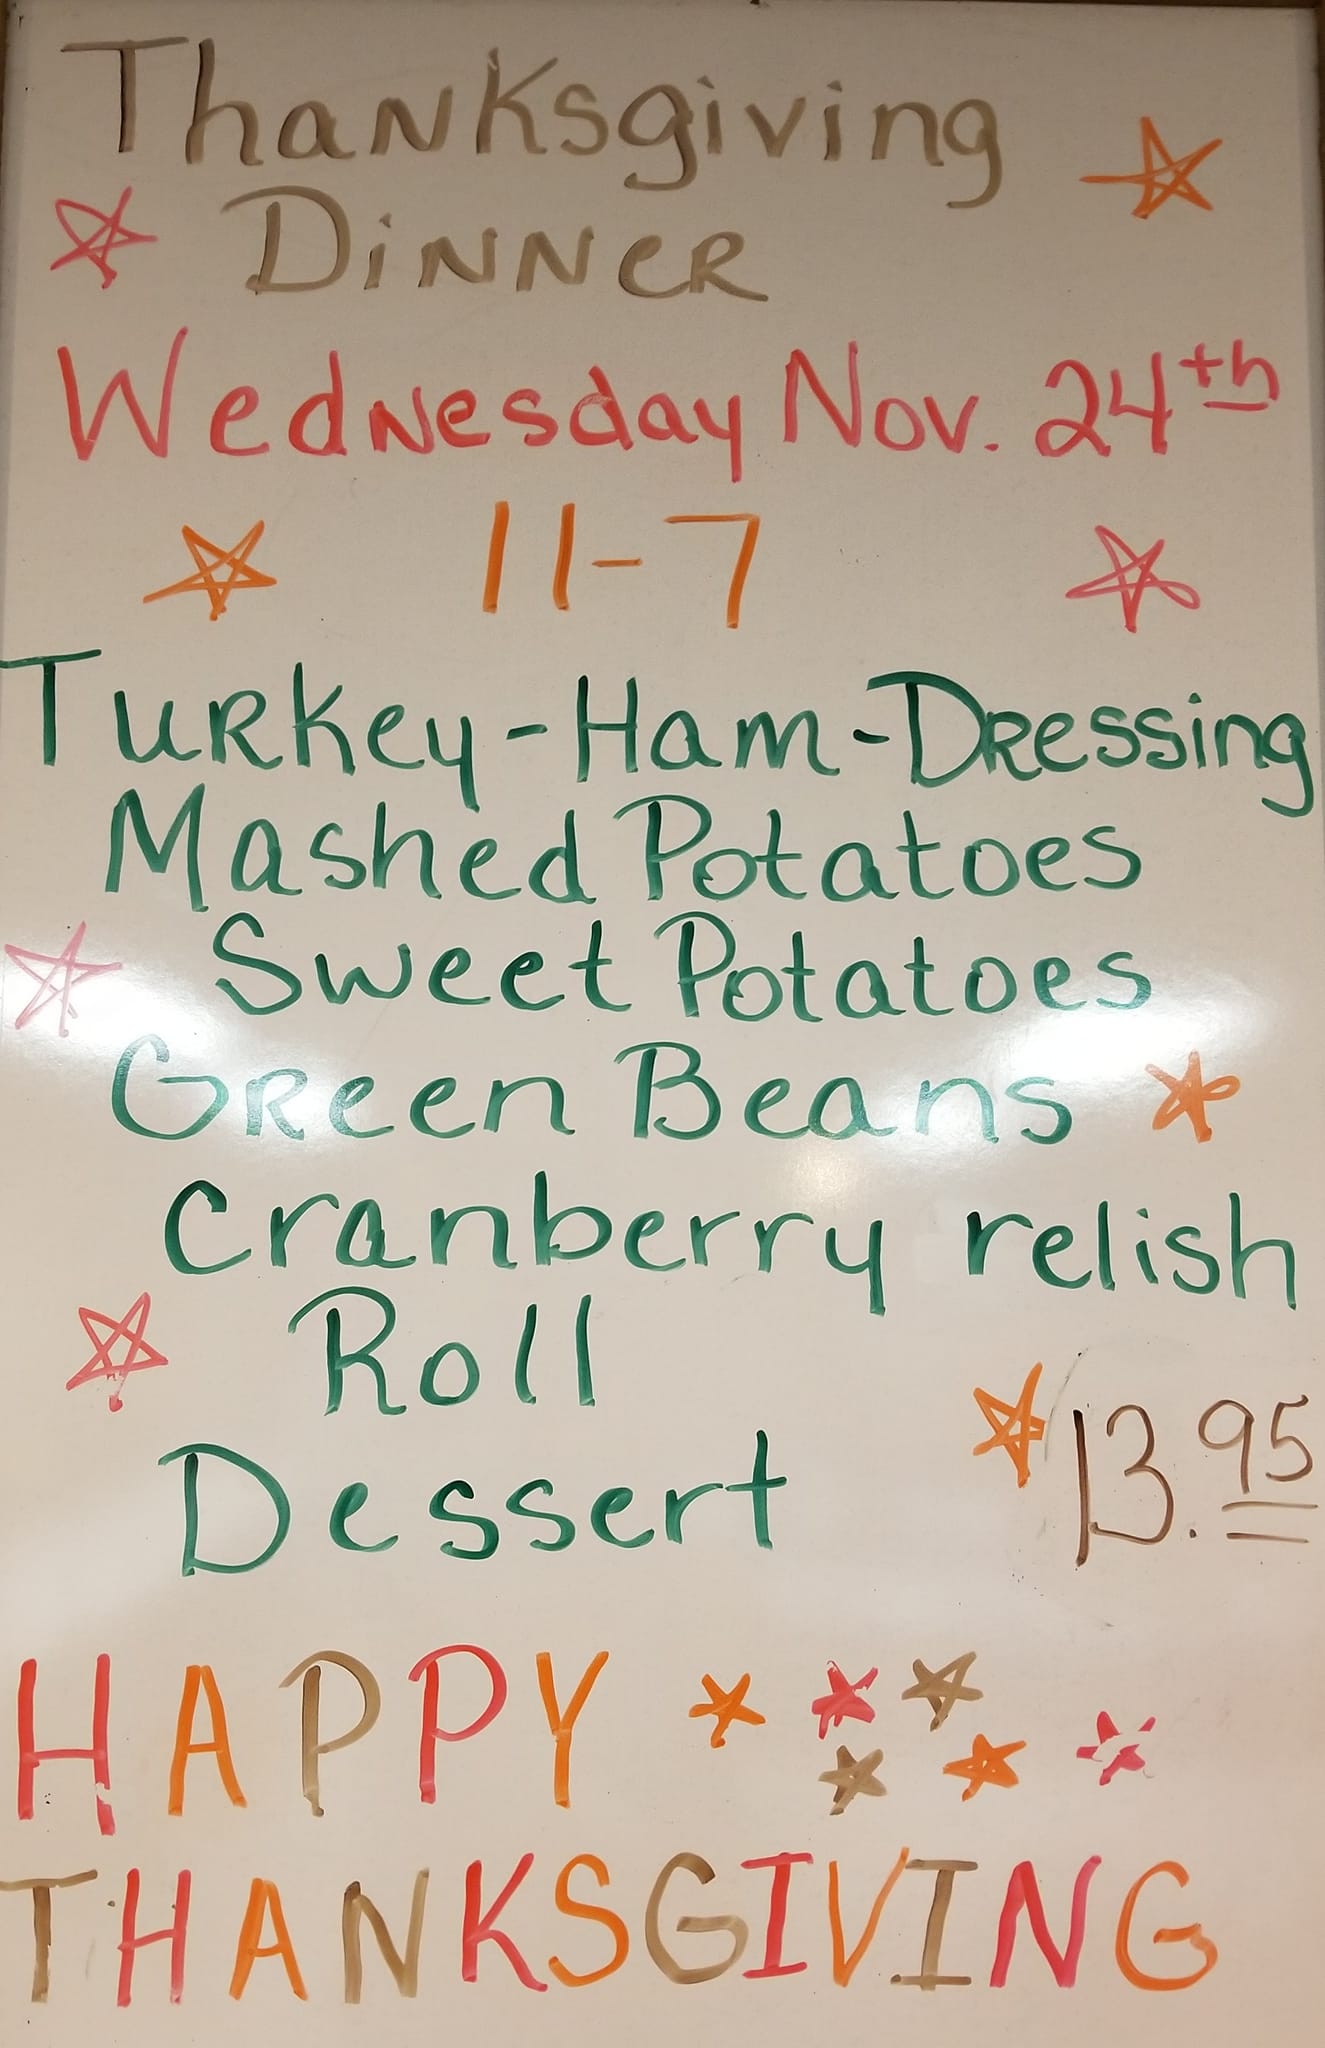 Thanksgiving
Dinner
Wednesday Nov. 24th
11-7
Turkey-Ham-Dressing
Mashed Potatoes
Sweet Potatoes
Green Beans
Cranberry relish
Roll
Dessert
13.95
HAPPY
THANKSGIVING